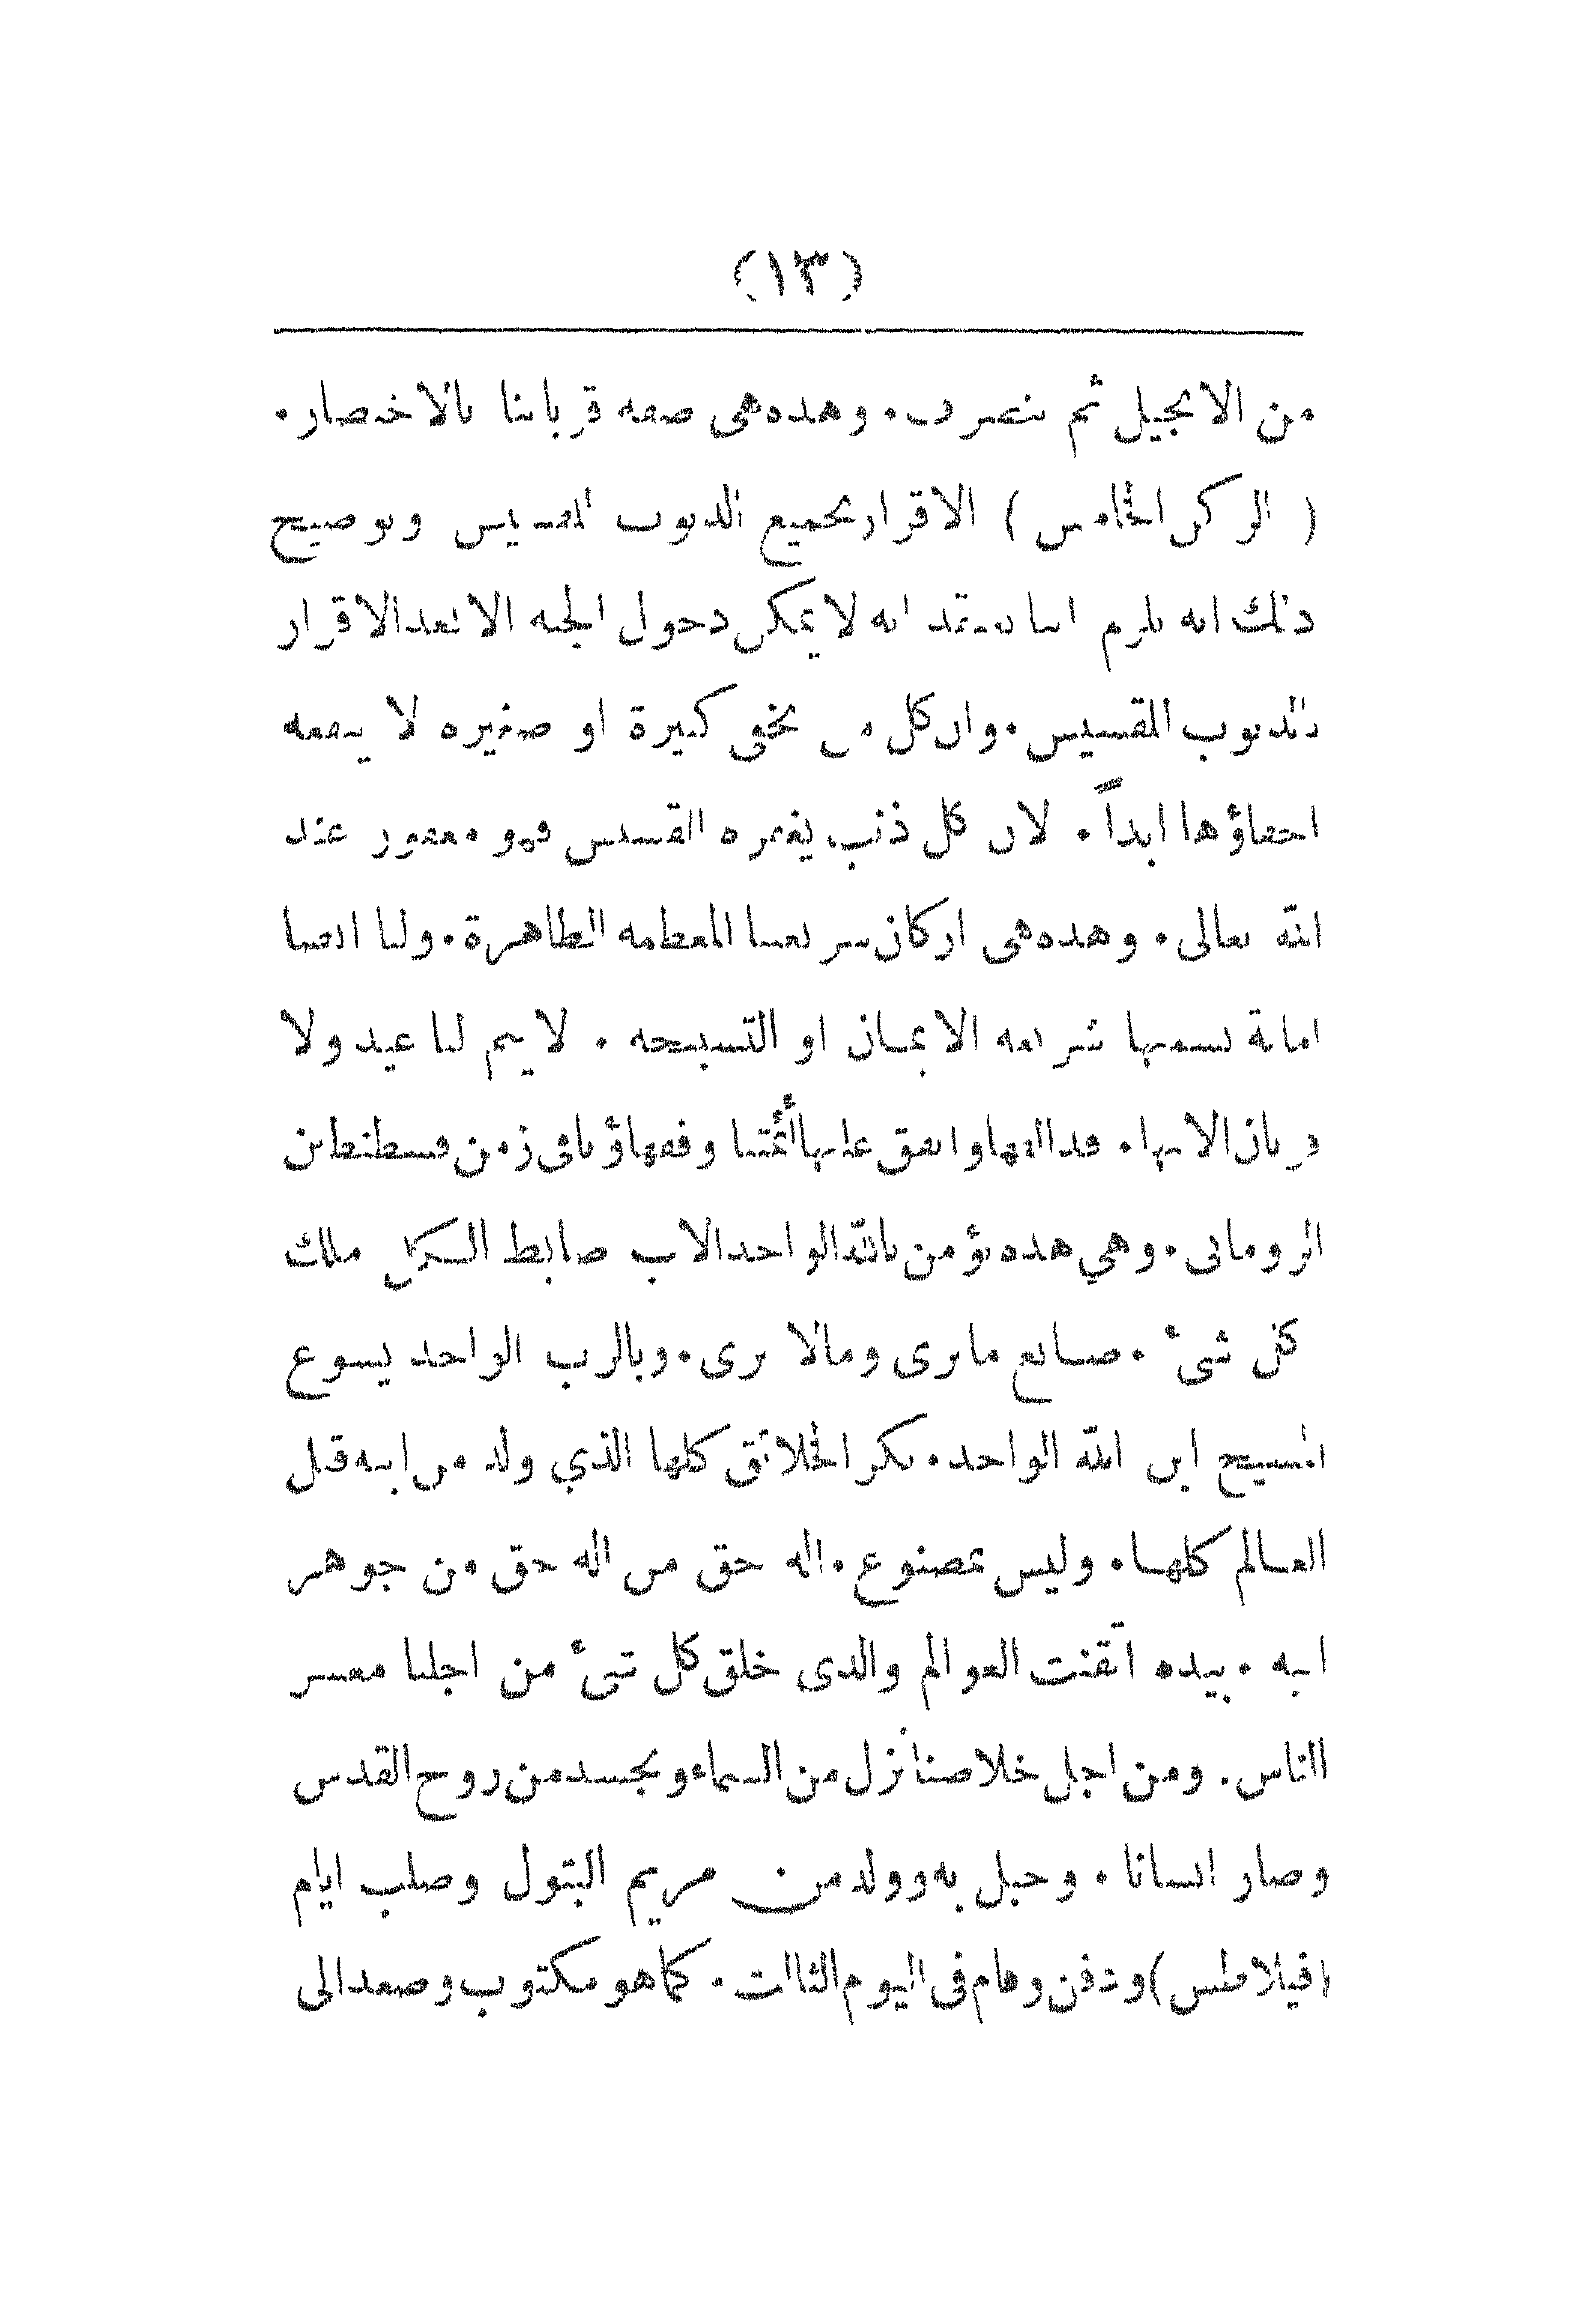 (١٣)
من الانجيل ثم ننصرف. وهذه هى صفة قرباننا بالاختصار.
( الركن الخامس ) الاقرار بجميع الذنوب للقسيس وتوضيح
ذلك انه يلزم اننا نعتقد انه لا يمكن دخول الجنة الا بعد الاقرار
بالذنوب للقسيس. وان كل من يخفى كبيرة او صغيره لا ينفعه
اخفاؤها ابداً. لان كل ذنب يغفره القسيس فهو مغفور عند
الله تعالى. وهذه هى اركان شريعتنا المعظمه الطاهرة. ولنا ايضا
امانة نسميها شريعه الايمان او التسبيحه. لا يتم لنا عيد ولا
قربان الا بها. قد الفها واتفق عليها أئمتنا وفقهاؤنا فى زمن قسطنطين
الرومانى. وهي هذه نؤمن بالله الواحد الاب ضابط الكل ملك
كل شىء. صانع ما يرى وما لا يرى. وبالرب الواحد يسوع
المسيح ابن الله الواحد. بكر الخلائق كلها الذي ولد من ابيه قبل
العالم كلها. وليس بمصنوع. اله حق من اله حق من جوهر
ابيه. بيده اتقنت العوالم والذى خلق كل شىء من اجلنا معشر
الناس. ومن اجل خلاصنا نزل من السماء وتجسد من روح القدس
وصار انسانا. وحبل به وولد من مريم البتول وصلب ايام
(فيلاطس) ودفن وقام فى اليوم الثالث. كما هو مكتوب وصعد الى